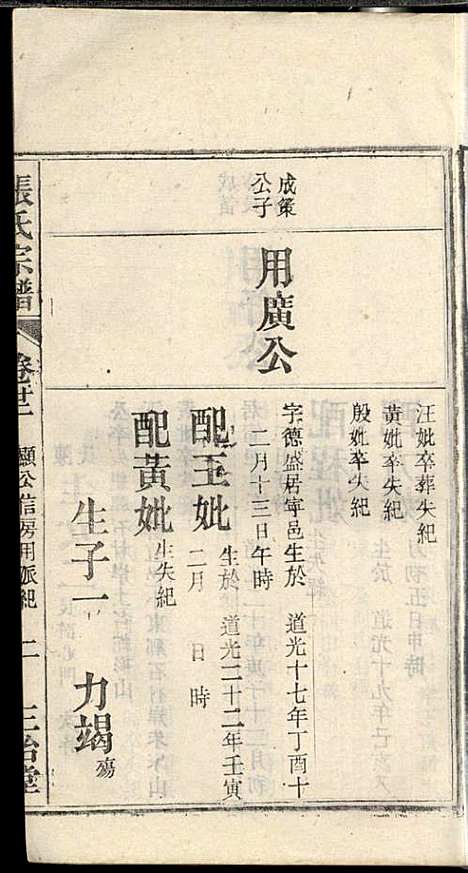 汪妣卒葬失紀
黃妣卒失紀
殷妣卒失紀
成策公子
用廣公
字德盛居寧邑生於 道光十七年丁酉十
二月十三日午時
配王妣 生於 道光二十二年壬寅
二月 日 時
配黃妣 生失紀
生子一 力竭 殤
張氏宗譜 卷廿二 顯公信房用派紀 二 三治堂